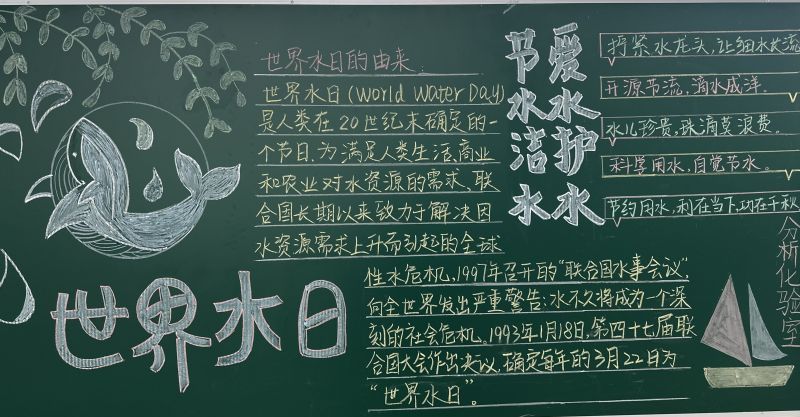 世界水日的由来:
世界水日(World Water Day)
是人类在20世纪末确定的一
个节日。为满足人类生活、商业
和农业对水资源的需求、联
合国长期以来致力于解决因
水资源需求上升而引起的全球
性水危机,1997年召开的“联合国水事会议”,
向全世界发出严重警告:水不久将成为一个深
刻的社会危机。1993年1月18日,第四十七届联
合国大会作出决议,确定每年的3月22日为
“世界水日”。
世界水日
节爱
水水
洁护
水水
拧紧水龙头,让细水长流
开源节流,滴水成洋。
水儿珍贵,珠滴莫浪费。
科学用水,自觉节水。
节约用水,利在当下,功在千秋
分析化验室